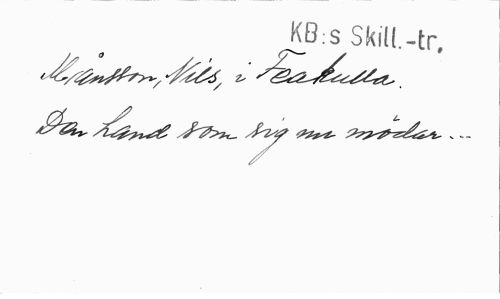 KB:s Skill.-tr.
Månsson, Nils, i Feakulla.
Den hand som sig nu mödar...